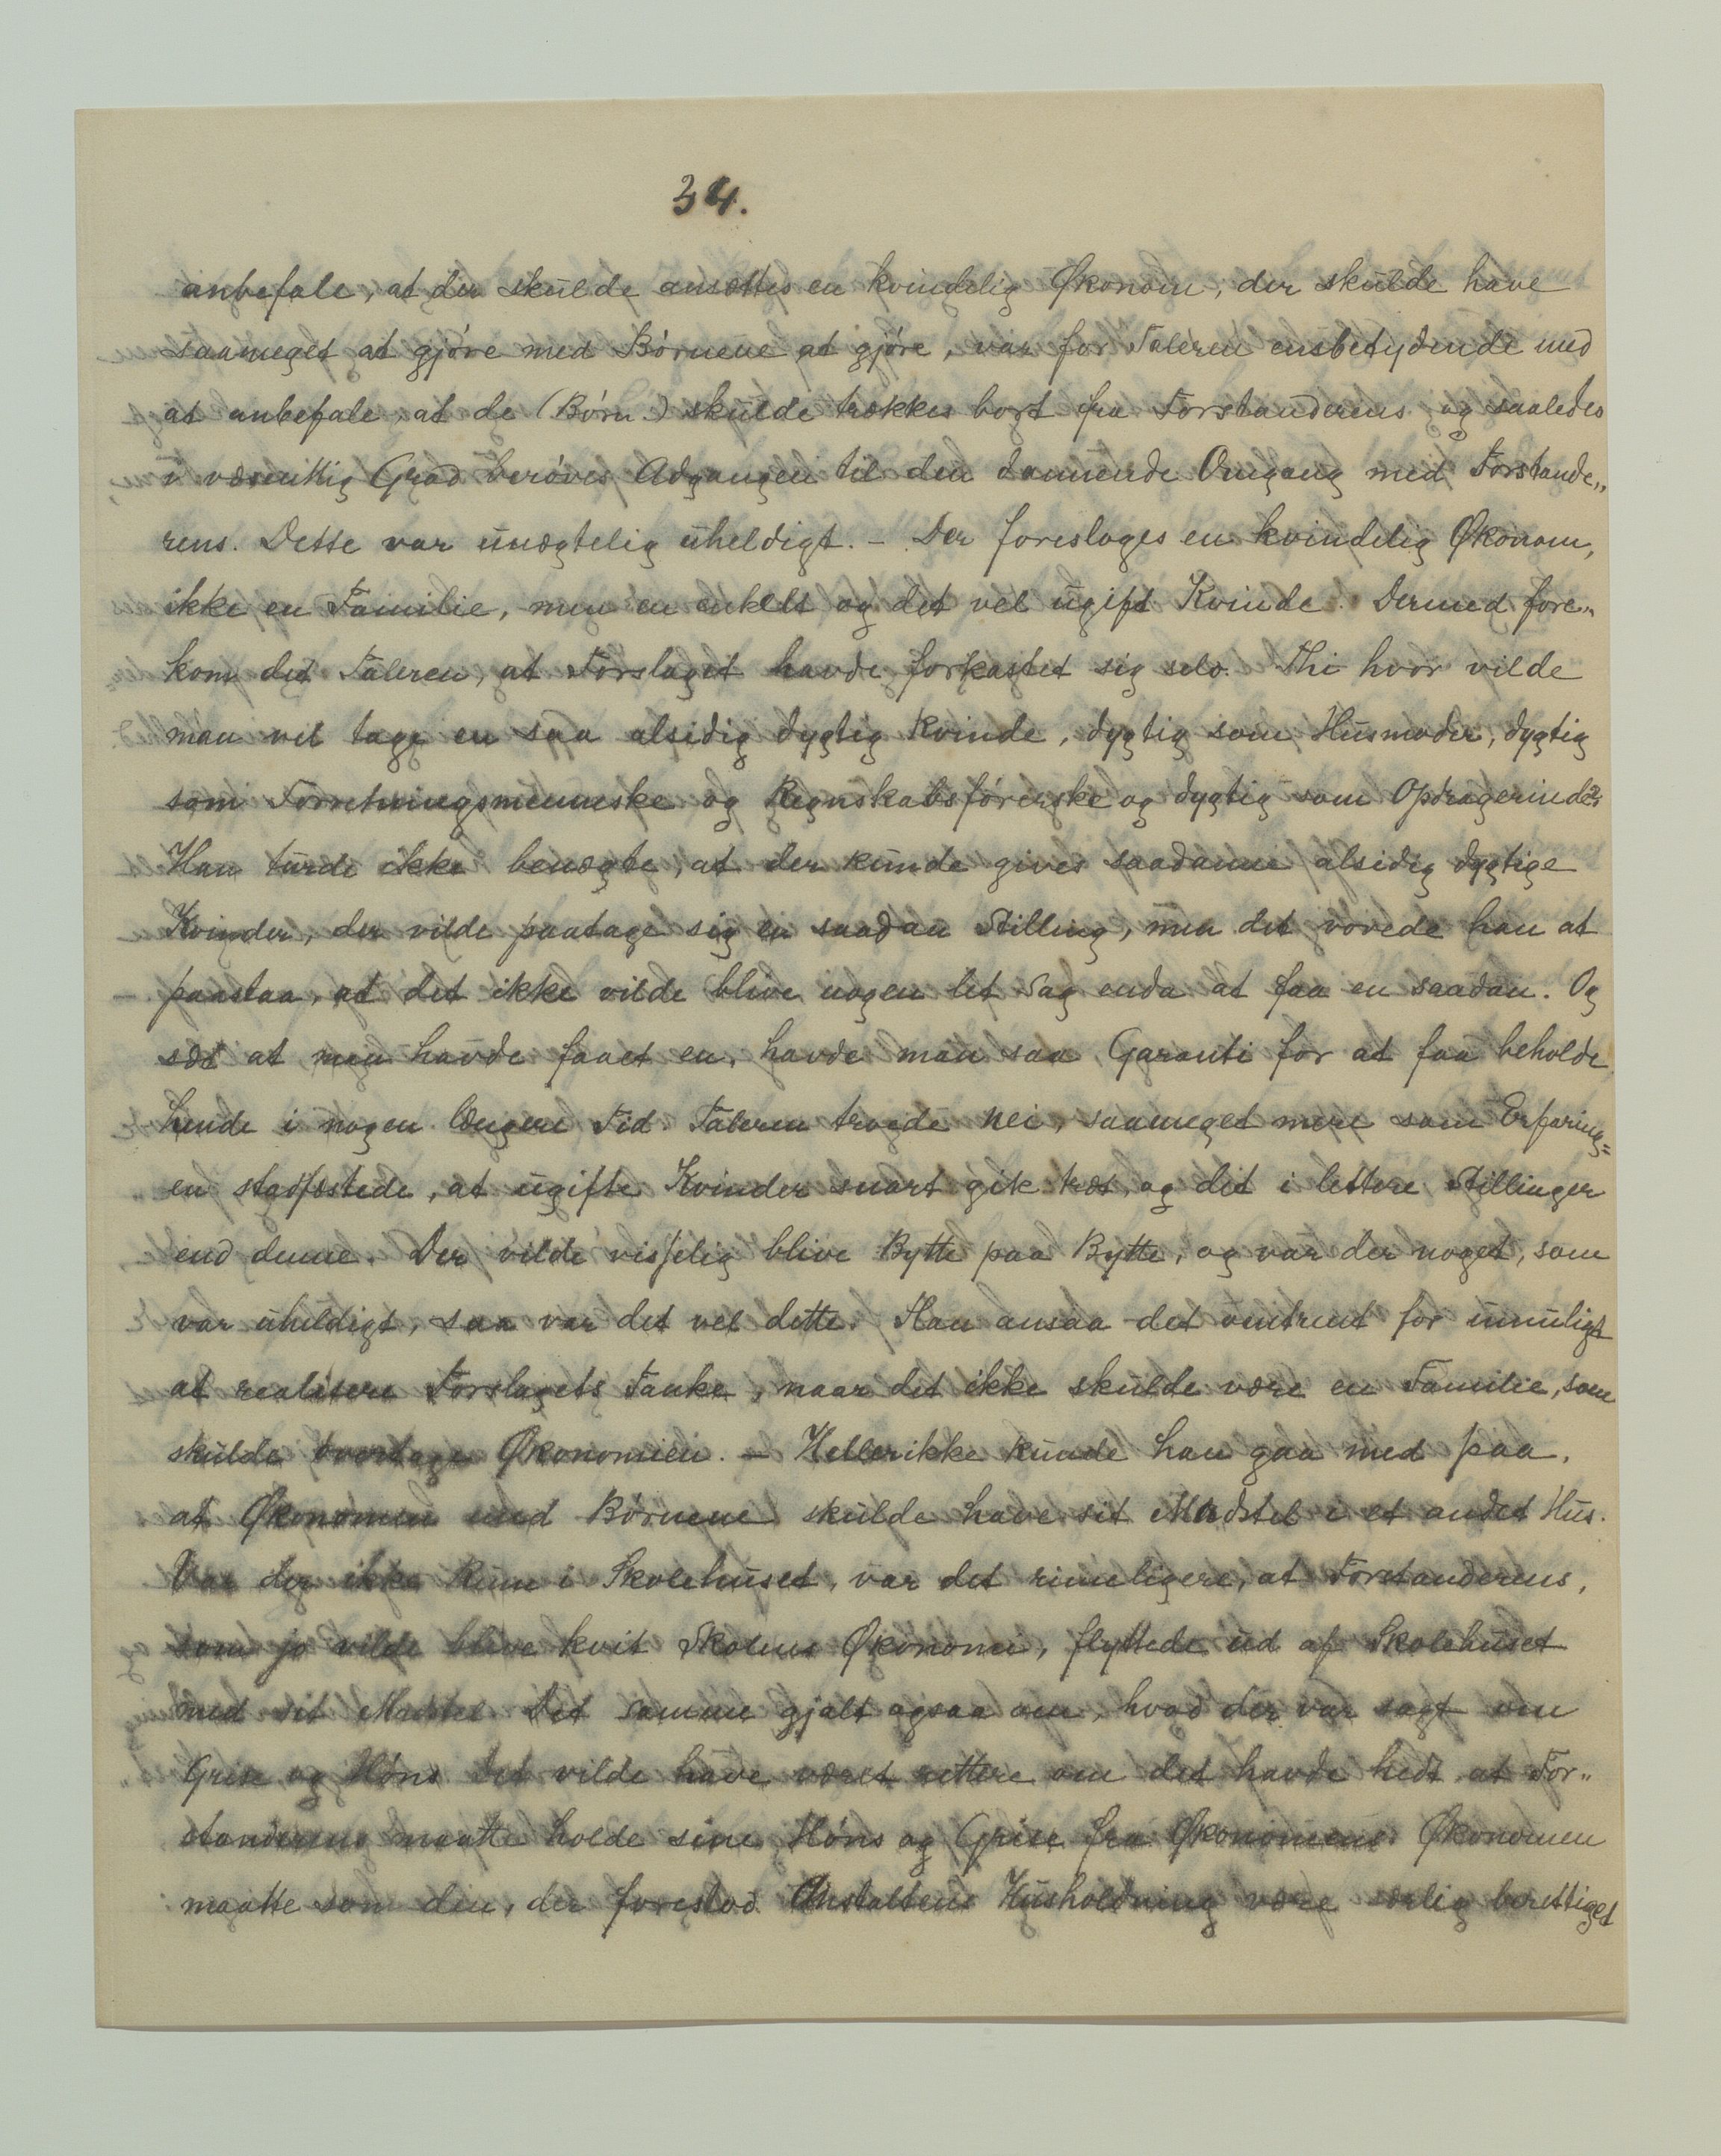 34.
anbefale, at der skulde ansættes en kvindelig Økonom, der skulde have
saameget at gjøre med Børnene at gjøre, var for Taleren ensbetydende med
at anbefale, at de (Børn.) skulde trækkes bort fra Forstanderens og saaledes
i væsentlig Grad berøves Adgangen til den dannende Omgang med Forstande„
rens. Dette var unægtelig uheldigt. – Der foresloges en kvindelig Økonom,
ikke en Familie, men en enkelt og det vel ugift Kvinde. Dermed fore„
kom det Taleren, at Forslaget havde forkastet sig selv. Thi hvor vilde
man vel tage en saa alsidig dygtig Kvinde, dygtig som Husmoder, dygtig
som Forretningsmenneske og Regnskabsførerske og dygtig som Opdragerinde?
Han turde ikke benægte, at der kunde gives saadanne alsidig dygtige
Kvinder, der vilde paatage sig en saadan Stilling, men det vovede han at
paastaa, at det ikke vilde blive nogen let Sag enda at faa en saadan. Og
sæt at man havde faaet en, havde man saa Garanti for at faa beholde
hende i nogen længere Tid. Taleren troede nei, saameget mere som Erfaring=
en stadfæstede, at ugifte Kvinder snart gik træt, og det i lettere Stillinger
end denne. Der vilde visselig blive Bytte paa Bytte, og var der noget, som
var uheldigt, saa var det vel dette. Han ansaa det omtrent for umuligt
at realisere Forslagets Tanke, naar det ikke skulde være en Familie, som
skulde overtage Økonomien. – Hellerikke kunde han gaa med paa,
at Økonomen med Børnene skulde have sit Madstel i et andet Hus.
Var der ikke Rum i Skolehuset, var det rimeligere, at Forstanderens,
som jo vilde blive kvit Skolens Økonomi, flyttede ud af Skolehuset
med sit Madstel. Det samme gjalt ogsaa om, hvad der var sagt om
Grise og Høns. Det vilde have været rettere om det havde hedt, at For„
standerens maatte holde sine Høns og Grise fra Økonomens. Økonomen
maatte som den, der forestod Anstaltens Husholdning være særlig berettiget